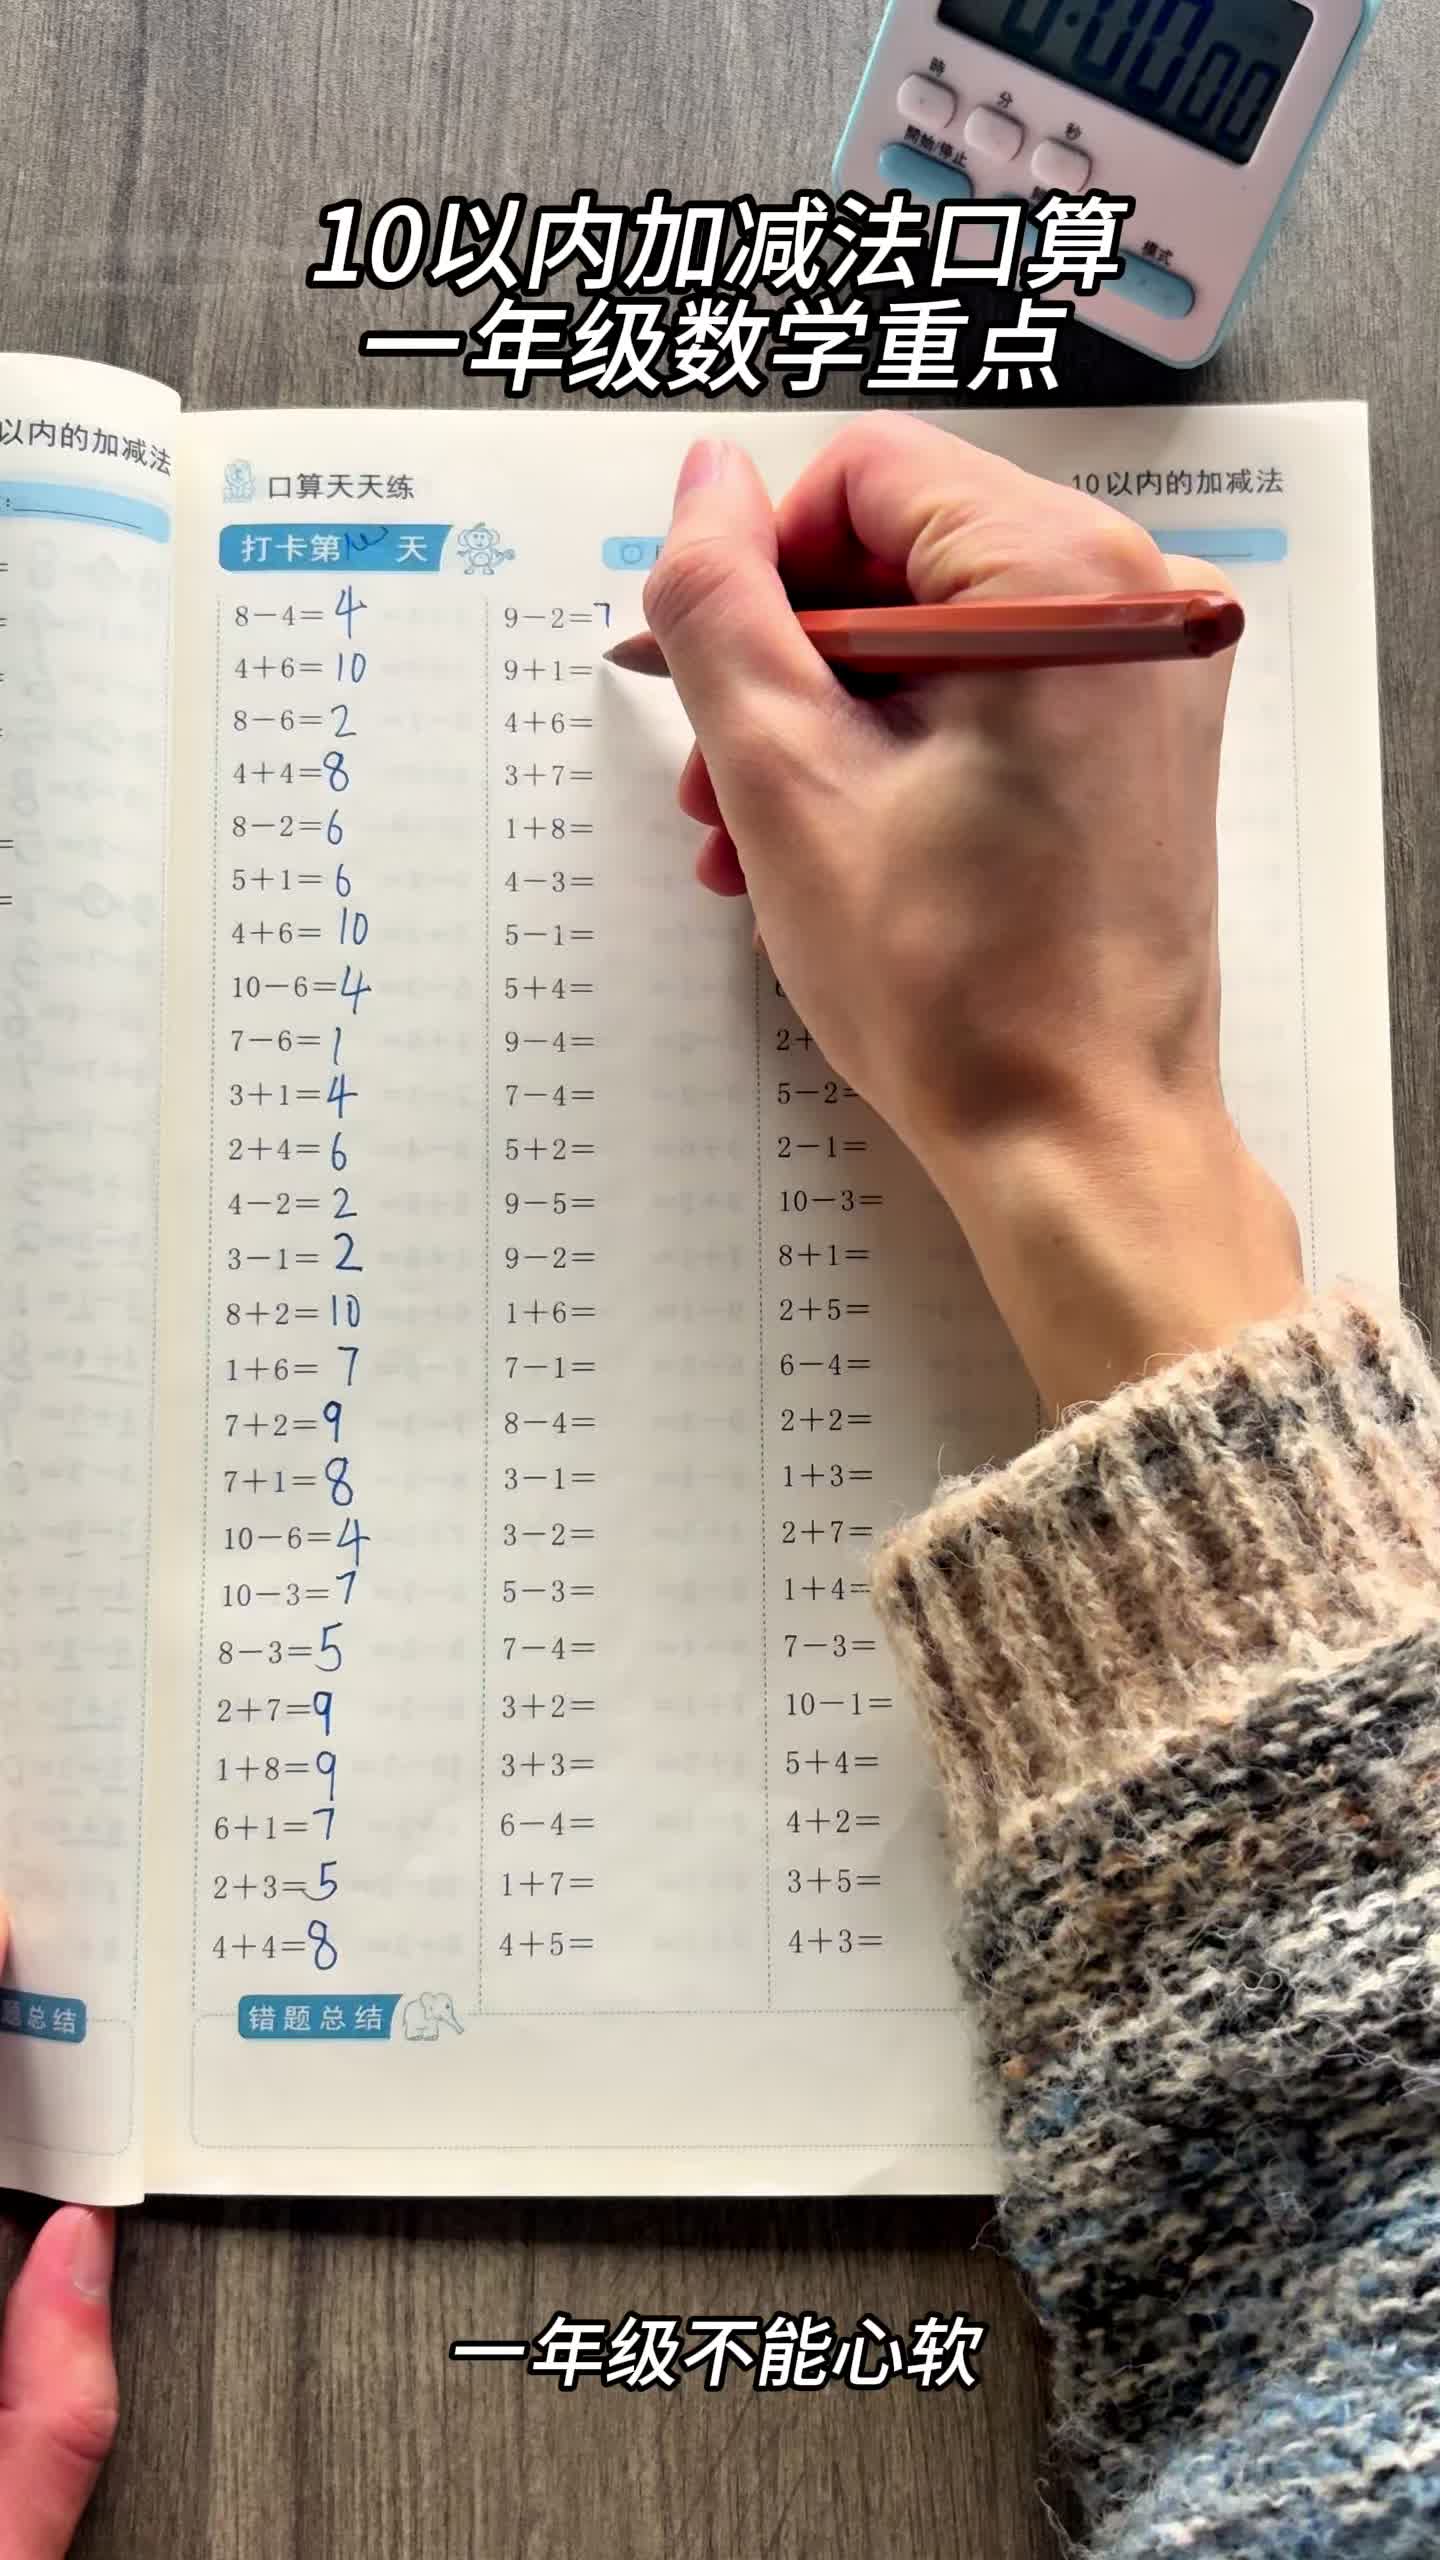 時
分
秒
開始/停止
模式
10以内加减法口算
一年级数学重点
以内的加减法
口算天天练
10以内的加减法
打卡第 天
8-4=4
4+6=10
8-6=2
4+4=8
8-2=6
5+1=6
4+6=10
10-6=4
7-6=1
3+1=4
2+4=6
4-2=2
3-1=2
8+2=10
1+6=7
7+2=9
7+1=8
10-6=4
10-3=7
8-3=5
2+7=9
1+8=9
6+1=7
2+3=5
4+4=8
9-2=7
9+1=
4+6=
3+7=
1+8=
4-3=
5-1=
5+4=
9-4=
7-4=
5+2=
9-5=
9-2=
1+6=
7-1=
8-4=
3-1=
3-2=
5-3=
7-4=
3+2=
3+3=
6-4=
1+7=
4+5=
2+
5-2=
2-1=
10-3=
8+1=
2+5=
6-4=
2+2=
1+3=
2+7=
1+4=
7-3=
10-1=
5+4=
4+2=
3+5=
4+3=
题总结
错题总结
一年级不能心软